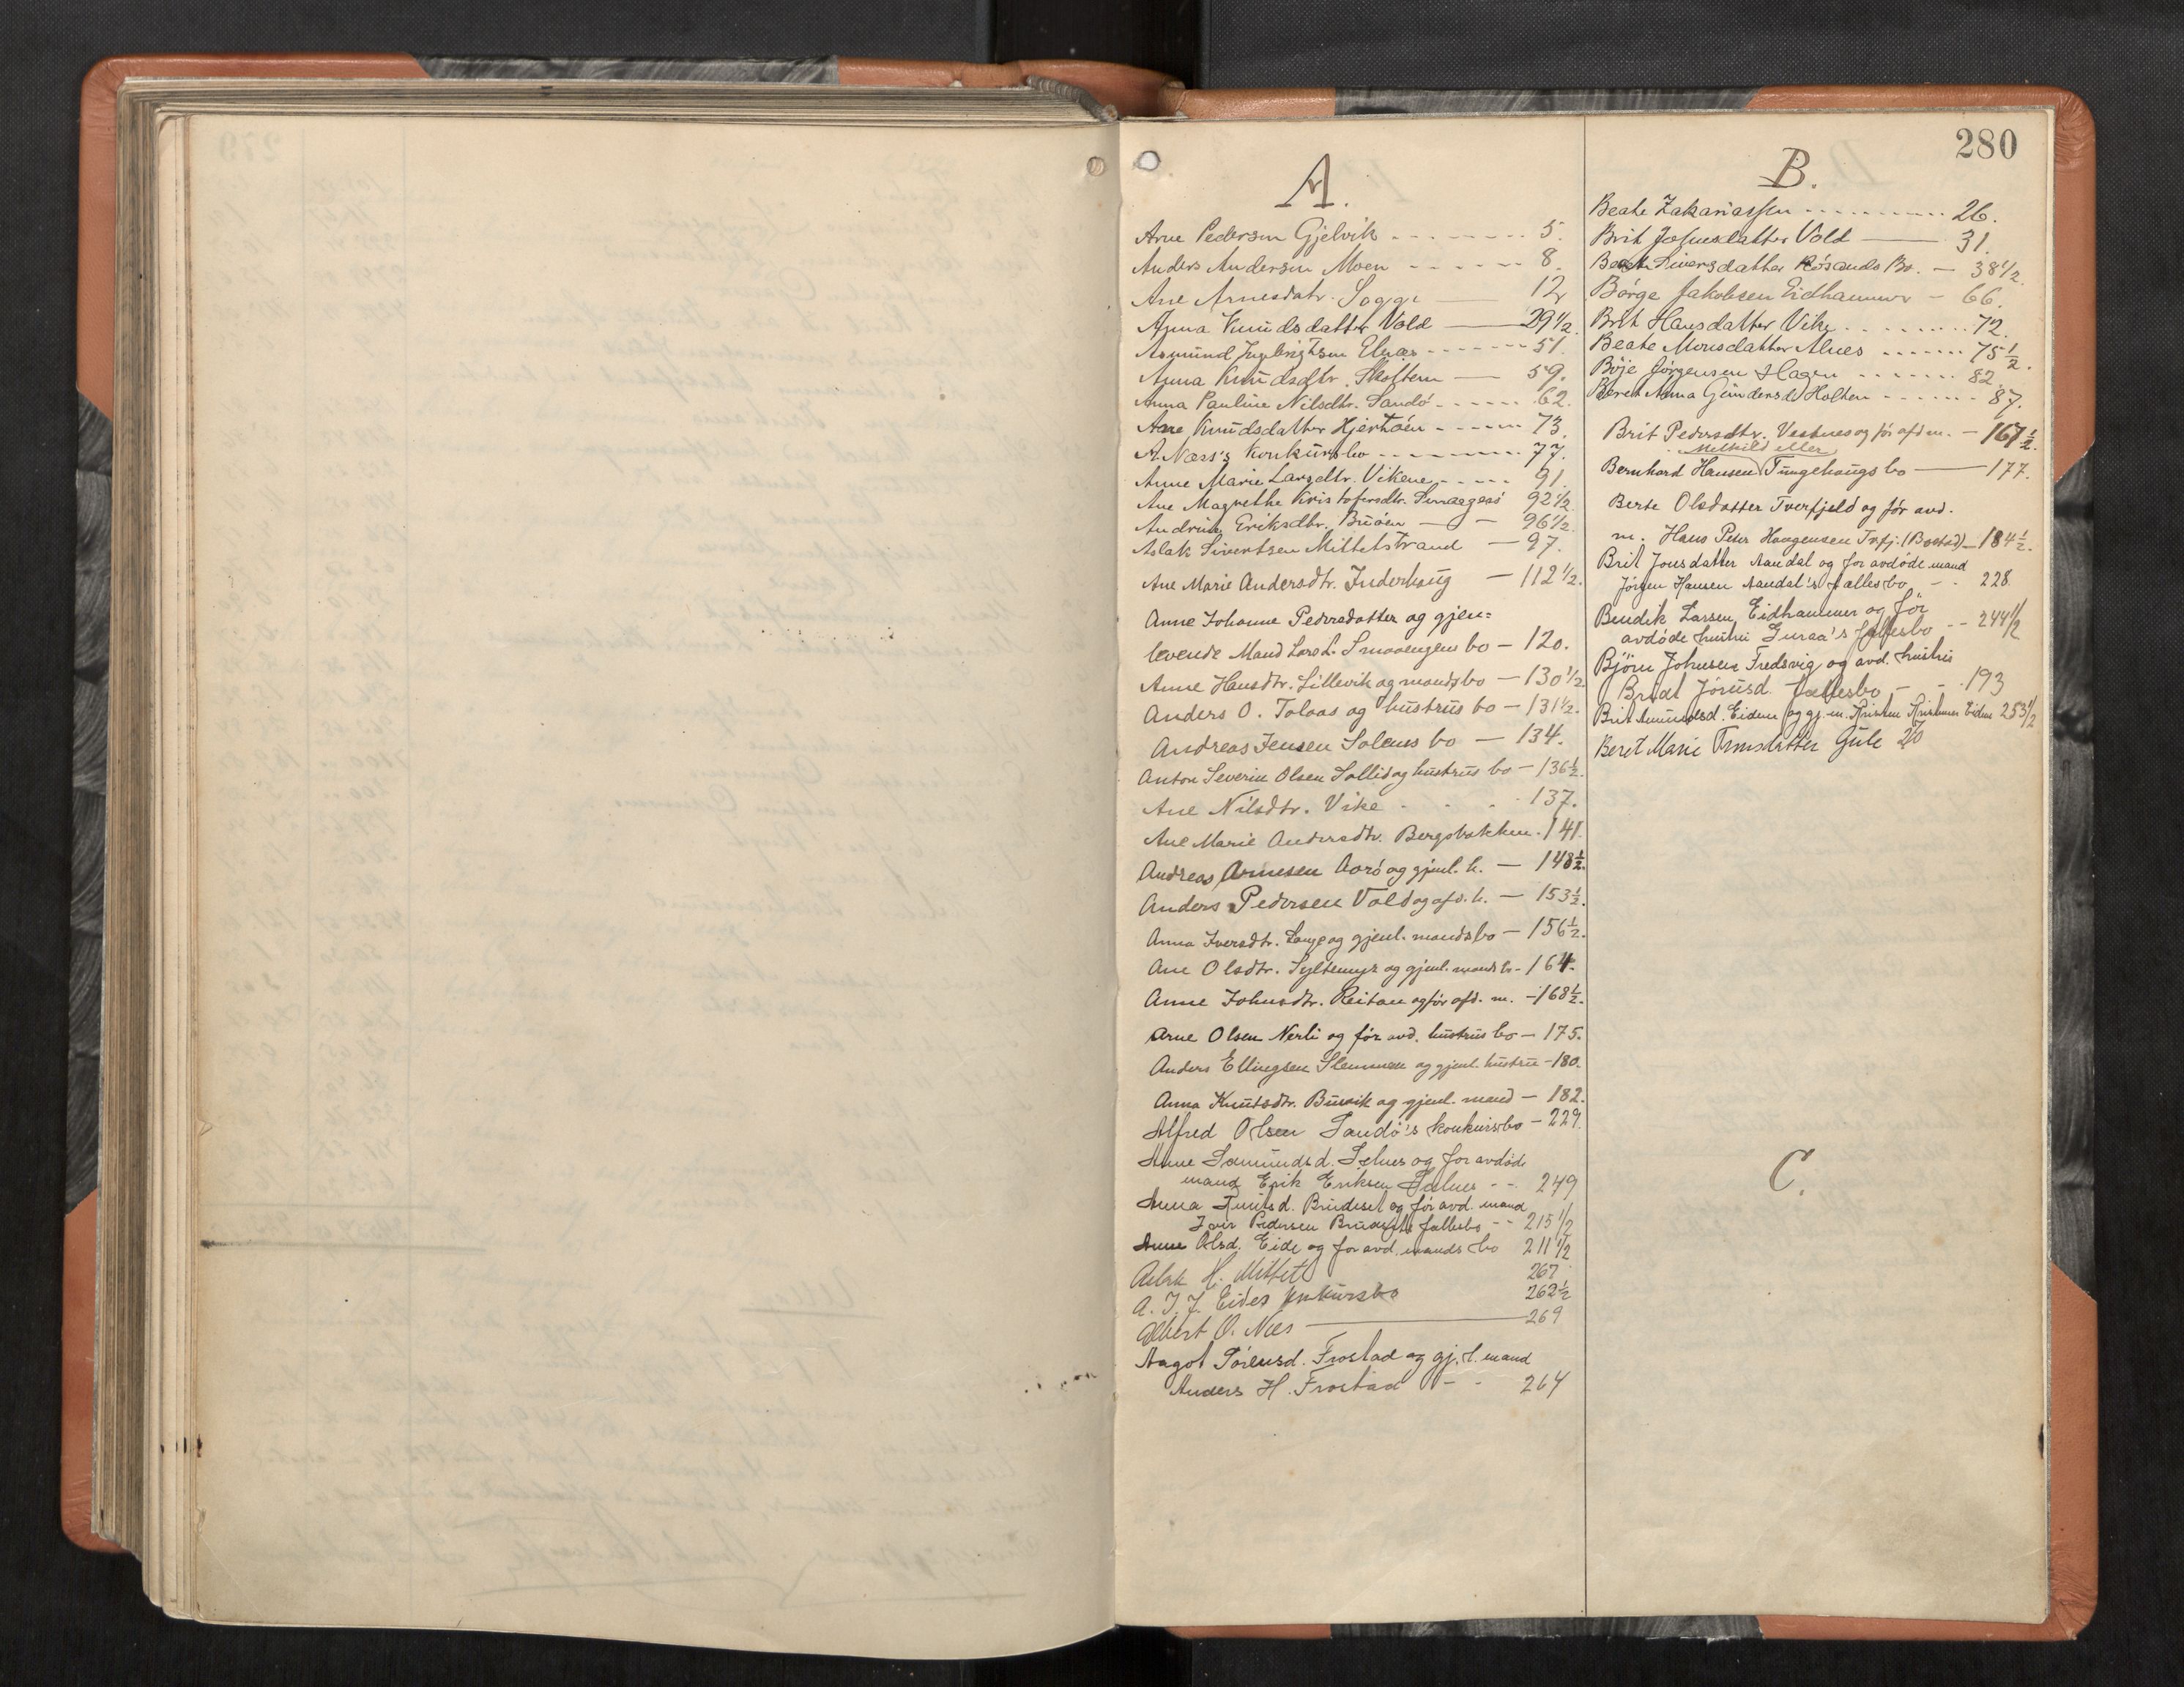 280
A.
Arne Pedersen Gjelvik 5.
Anders Andersen Moen 8.
Ane Arnesdatr. Sogge 12
Anna Knudsdatter Vold 29 1/2.
Asmund Ingebrigtsen Elnæs 51.
Anna Knudsdtr. Skottem 59.
Anna Pauline Nilsdtr. Sandö 62.
Ane Knudsdatter Hjertöen 73.
A. Næss's Konkursbo 77.
Anne Marie Larsdtr. Vikene 91.
Ane Magrethe Kristofersdtr. 92 1/2
Andrine Eriksdtr. Buöen 96 1/2.
Aslak Sivertsen Mittetstrand 97.
Ane Marie Andersdtr. Inderhaug — 112 1/2.
Anne Johanne Pedersdatter og gjen=
levende Mand Lars L. Smaaengens bo — 120.
Anne Hansdtr. Lillevik og mands bo — 130 1/2
Anders O. Tolaas og hustrus bo — 131 1/2.
Andreas Jensen Solems bo — 134.
Anton Severin Olsen Sollid og hustrus bo — 136 1/2.
Ane Nilsdtr. Vike 137.
Ane Marie Andersdtr. Bergsbakken. 141.
Andreas Arnesen Aarö og gjenl. h. — 148 1/2.
Anders Pedersen Vold og afd. h. — 153 1/2.
Anna Iversdtr. Lange og gjenl. mands bo — 156 1/2.
Ane Olsdtr. Syltemyr og gjenl. mands b. — 164.
Anne Johnsdtr. Reitan og för afd. m. — 168 1/2.
Arne Olsen Nerli og för avd. hustrus bo — 175.
Anders Ellingsen Slemmen og gjenl. hustru — 180.
Anna Knutsdtr. Buvik og gjenl. mand — 182.
Alfred Olsen Sandö's konkursbo — 229.
Anne Samundsd. Selnes og for avdöde
mand Erik Eriksen Selnes 249
Anna Knutsd. Brudeset og för avd. mand
Iver Pedersen fællesbo 215 1/2
Anne Olsd. Eide og for avd. mands bo 211 1/2
Aslak H. Mittet 267
A. J. J. Eides konkursbo 262 1/2
Albert O. Næs 269
Aagot Sörensd. Frostad og gj. l. mand
Anders H. Frostad 264
B.
Beate Zakariassen 26.
Brit Johnsdatter Vold 31.
Beret Siversdatter Rösands Bo. — 38 1/2.
Börge Jakobsen Eidhammer — 66.
Brit Hansdatter Vike 72.
Beate Monsdatter Alnes 75 1/2.
Böje Jörgensen Hagen 82.
Beret Anna Gundersd Holten 87.
Brit Pedersdtr. Vestnes og för afd m. — 167 1/2.
Methild eller
Bernhard Hansen Tungehaugs bo — 177.
Berte Olsdatter Tverfjeld og för avd.
m. Hans Peter Haagensen Tvfj. (Bostad) — 184 1/2.
Brit Jonsdatter Aandal og for avdöde mand
Jörgen Hansen Aandal's fællesbo 228
Bendik Larsen Eidhammer og för
avdöde hustru Guraa's fællesbo 244 1/2
Björn Johnsen Fredsvig og avd. hustru
Brudt fællesbo 193
Brit Amundsd. Eidem og gj. m. Kristen Eidem 253 1/2
Beret Marie Gule 210
C.